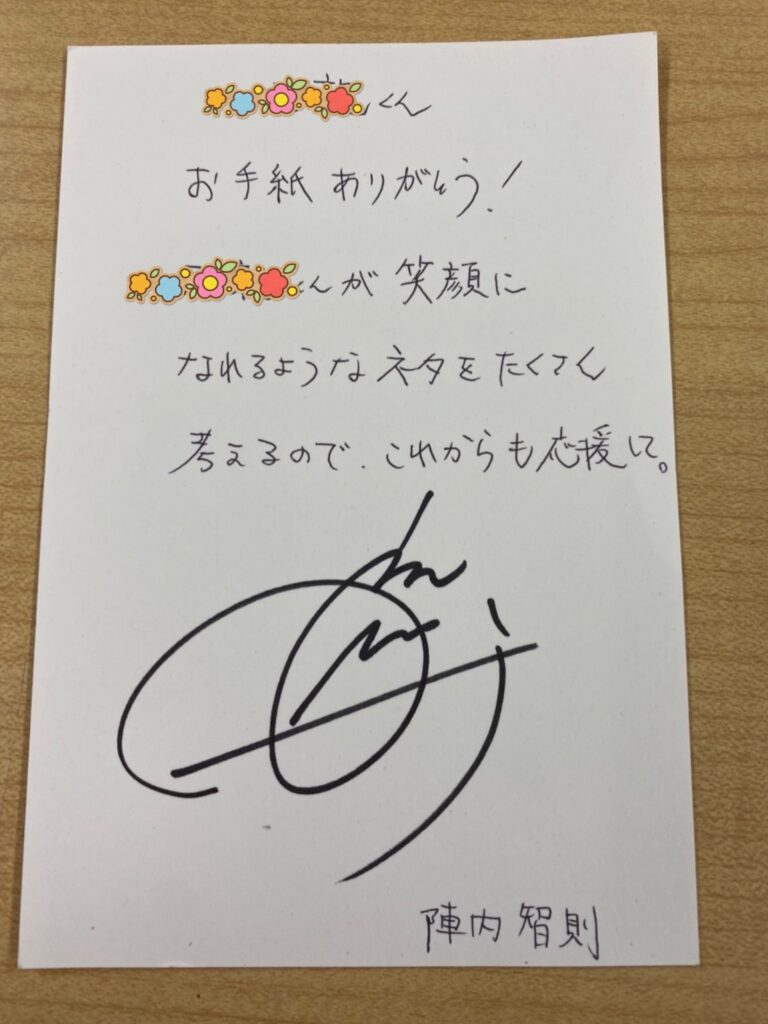 くん
お手紙ありがとう!
くんが笑顔に
なれるようなネタをたくさん
考えるので、これからも応援して。
陣内智則